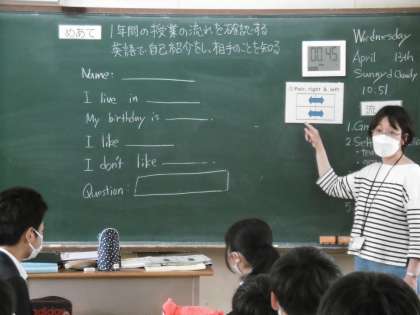 めあて
1年間の授業の流れを確認する
英語で自己紹介をし、相手のことを知る
Name:
I live in
My birthday is
I like
I don't like
Question:
00:45
Pair, right & left
Wednesday
April 13th
Sunny & Cloudy
10:51
流
1.
2